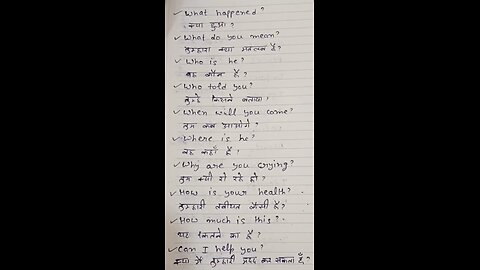 ✓ What happened?
क्या हुआ?
✓ What do you mean?
तुम्हारा क्या मतलब है?
✓ Who is he?
वह कौन है?
✓ Who told you?
तुम्हे किसने बताया?
✓ When will you come?
तुम कब आओगे?
✓ Where is he?
वह कहाँ है?
✓ Why are you crying?
तुम क्यों रो रहे हो?
✓ How is your health?
तुम्हारी तबीयत कैसी है?
✓ How much is this?
यह कितने का है?
✓ Can I help you?
क्या मैं तुम्हारी मदद कर सकता हूँ?